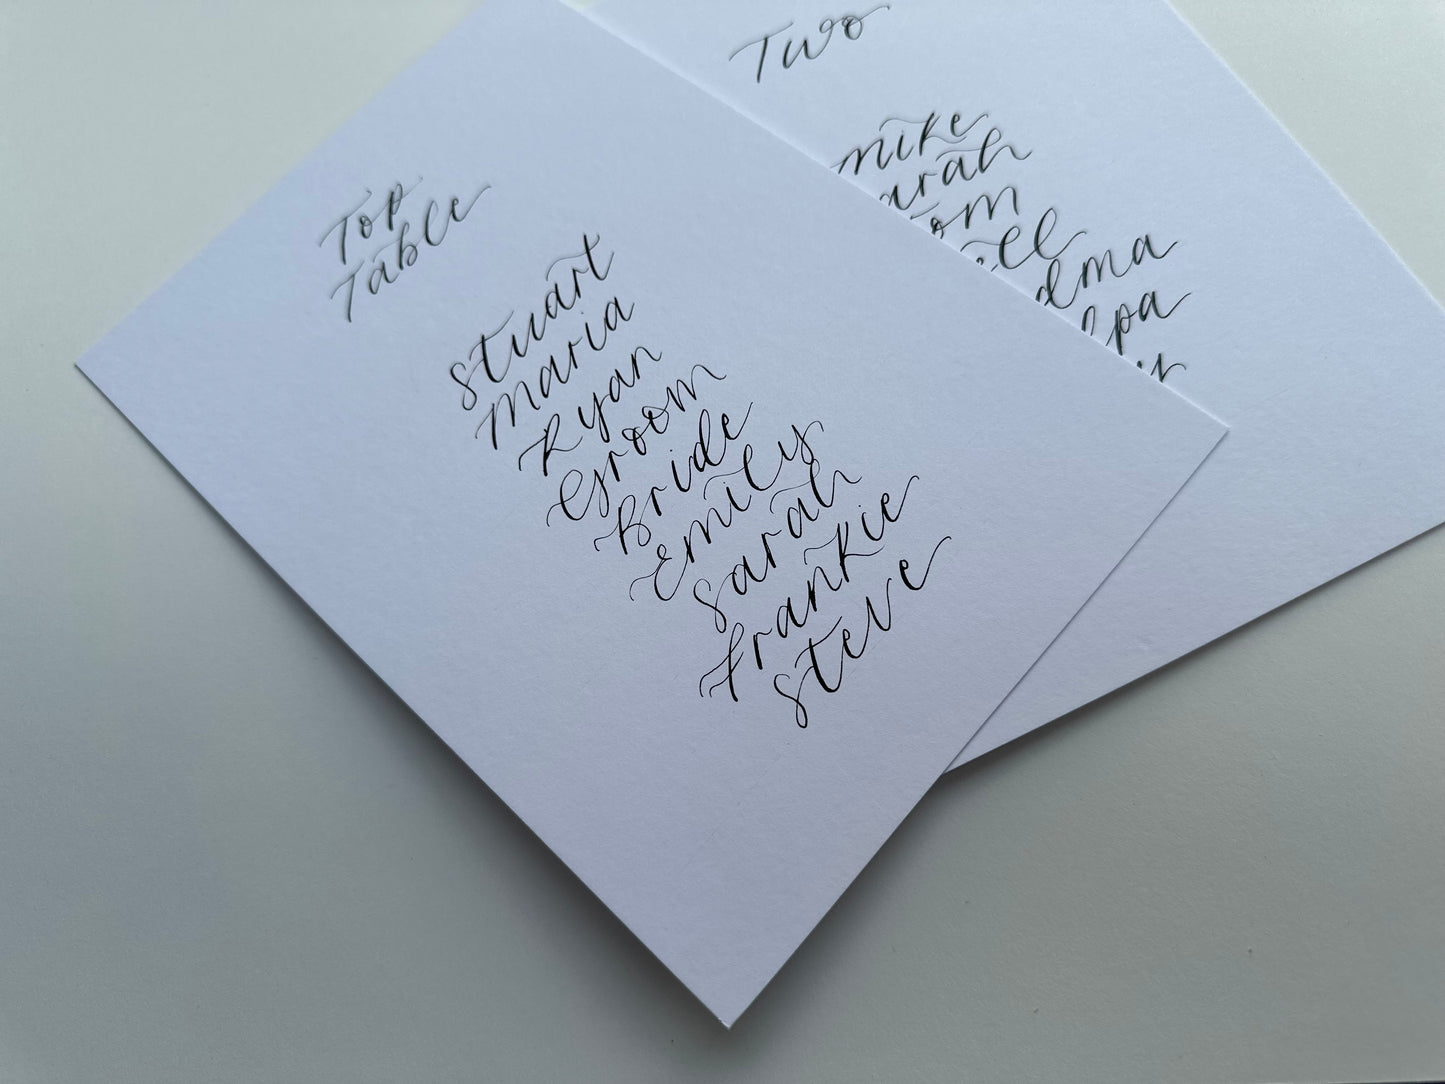 Top
Table
Stuart
Maria
Ryan
Groom
Bride
Emily
Sarah
Frankie
Steve
Two
Mike
arah
om
ell
dma
lpa